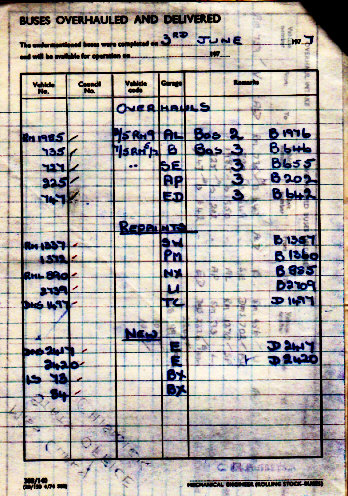 BUSES OVERHAULED AND DELIVERED
The undermentioned buses were completed on 3RD JUNE 197
and will be available for operation on 197
Vehicle No. Council No. Vehicle code Garage Remarks
OVERHAULS
RM 1985 AL BOS 2 B 1976
735 B BOS 3 B 646
737 SE 3 B 655
225 AP 3 B 202
747 FD 3 B 642
REPAINTS
RM 1337 SW B 1357
1372 PM B 1360
RML 890 NX B 885
2739 LI B 2709
DMS 1497 TC D 1497
NEW
DMS 2417 E D 2417
2420 E D 2420
LS 78 BX
84 BX
CHISWICK
OFFICE
MECHANICAL ENGINEER (ROLLING STOCK-BUSES)